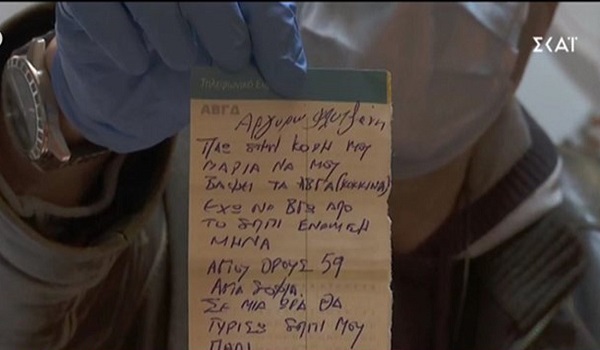 ΣΚΑΪ
Τηλεφωνικό
ΑΒΓΔ
Αργυρώ
ΠΑΩ ΣΤΗΝ ΚΟΡΗ ΜΟΥ
ΜΑΡΙΑ ΝΑ ΜΟΥ
ΒΑΨΕΙ ΤΑ ΑΒΓΑ (ΚΟΚΚΙΝΑ)
ΕΧΩ ΝΑ ΒΓΩ ΑΠΟ
ΤΟ ΣΠΙΤΙ ΕΝΑΜΙΣΗ
ΜΗΝΑ
ΑΓΙΟΥ ΟΡΟΥΣ 59
ΑΓΙΑ ΣΟΦΙΑ
ΣΕ ΜΙΑ ΩΡΑ ΘΑ
ΓΥΡΙΣΩ ΣΠΙΤΙ ΜΟΥ
ΠΑΛΙ